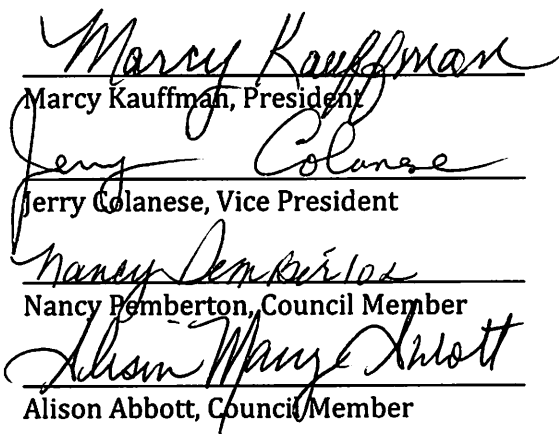 Marcy Kauffman
Marcy Kauffman, President
Jerry Colanese
Jerry Colanese, Vice President
Nancy Pemberton
Nancy Pemberton, Council Member
Alison Abbott
Alison Abbott, Council Member